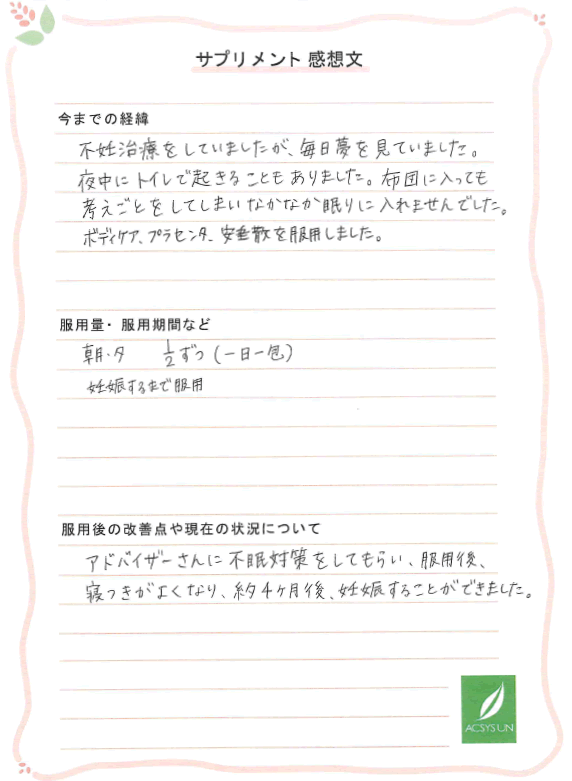 サプリメント 感想文
今までの経緯
不妊治療をしていましたが、毎日夢を見ていました。
夜中にトイレで起きることもありました。布団に入っても
考えごとをしてしまいなかなか眠りに入れませんでした。
ボディケア、プラセンタ、安垂散を服用しました。
服用量・服用期間など
朝・夕 1/2ずつ(一日一包)
妊娠するまで服用
服用後の改善点や現在の状況について
アドバイザーさんに不眠対策をしてもらい、服用後、
寝つきがよくなり、約4ヶ月後、妊娠することができました。
ACSYSUN